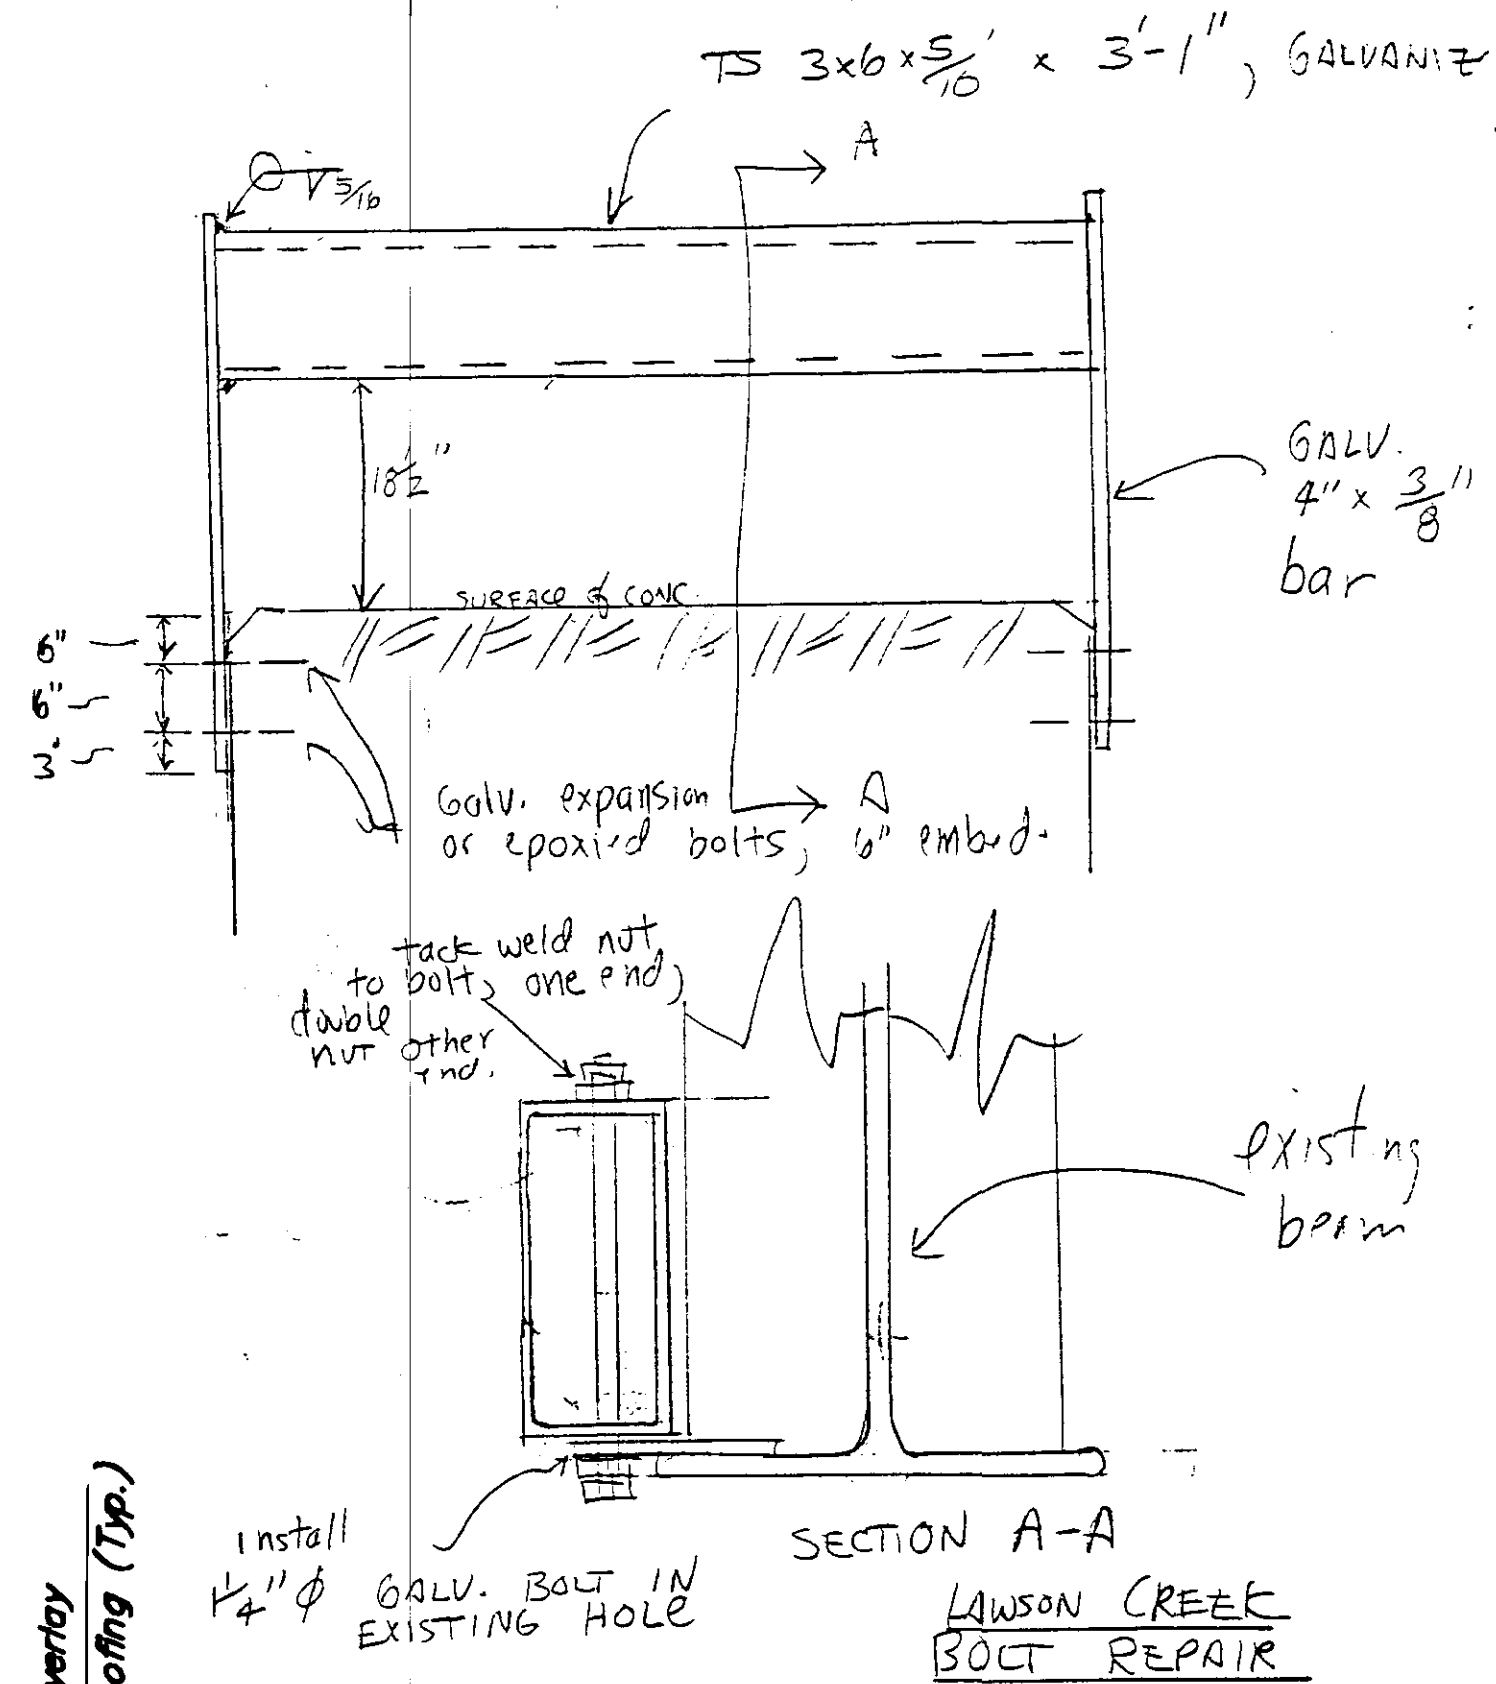 TS 3x6x5/16" x 3'-1", GALVANIZ
A
5/16
18 1/2"
GALV.
4" x 3/8"
bar
SURFACE of CONC.
6"
6"
3"
A
Galv. expansion
or epoxied bolts, 6" embed.
tack weld nut
to bolt, one end,
double
nut other
end.
existing
beam
install
1 1/4" φ GALV. BOLT IN
EXISTING HOLE
SECTION A-A
LAWSON CREEK
BOLT REPAIR
verlay
ofing (Typ.)